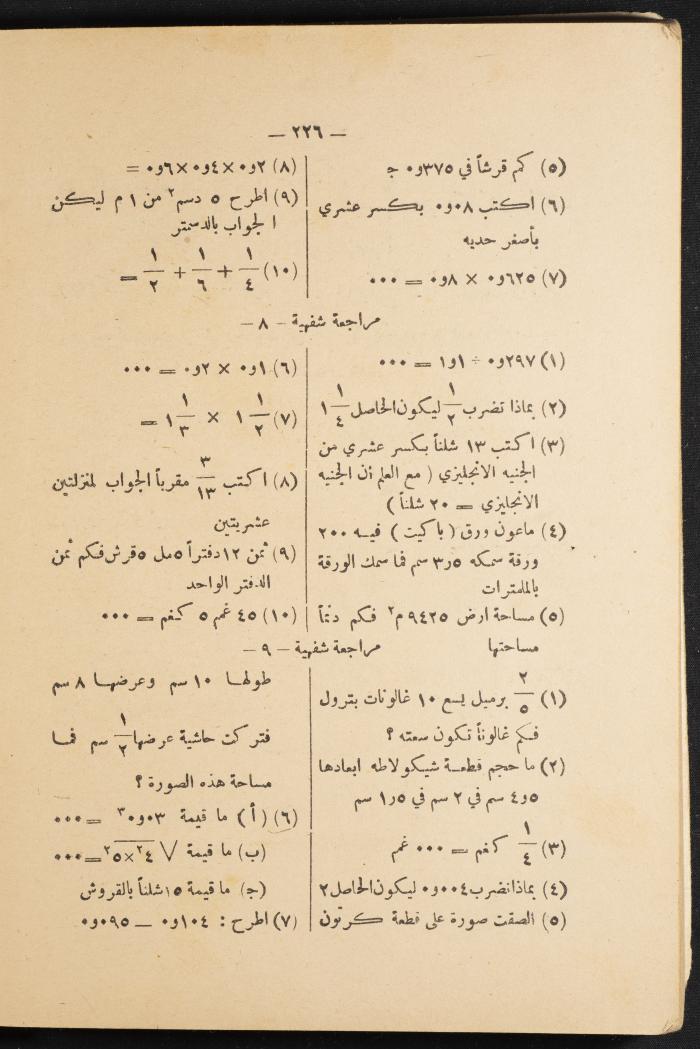 — ٢٢٦ —
(٥) كم قرشاً في ٣٧٥و٠ ج
(٦) اكتب ٠٨و٠ بكسر عشري
بأصغر حديه
(٧) ٦٢٥و٠ × ٨و٠ = ٠٠٠
(٨) ٢و٠ × ٤و٠ × ٦و٠ =
(٩) اطرح ٥ دسم٢ من ١ م ليكن
الجواب بالدسمتر
(١٠) ١/٤ + ١/٦ + ١/٢ =
مراجعة شفهية - ٨ -
(١) ٢٩٧و٠ ÷ ١و١ = ٠٠٠
(٢) بماذا تضرب ١/٢ ليكون الحاصل ١ ١/٤
(٣) اكتب ١٣ شلناً بكسر عشري من
الجنيه الانجليزي ( مع العلم أن الجنيه
الانجليزي = ٢٠ شلناً )
(٤) ماعون ورق ( باكيت ) فيه ٢٠٠
ورقة سمكه ٥و٣ سم فما سمك الورقة
بالملمترات
(٥) مساحة ارض ٩٤٢٥ م٢ فكم دنماً
مساحتها
(٦) ١و٠ × ٢و٠ = ٠٠٠
(٧) ١ ١/٢ × ١ ١/٣ =
(٨) اكتب ٣/١٣ مقرباً الجواب لمنزلتين
عشريتين
(٩) ثمن ١٢ دفتراً ٥ مل ٥ قرش فكم ثمن
الدفتر الواحد
(١٠) ٤٥ غم ٥ كغم = ٠٠٠
مراجعة شفهية - ٩ -
(١) ٢/٥ برميل يسع ١٠ غالونات بترول
فكم غالوناً تكون سعته ؟
(٢) ما حجم قطعة شيكولاطه ابعادها
٥و٤ سم في ٢ سم في ٥و١ سم
(٣) ١/٤ كغم = ٠٠٠ غم
(٤) بماذا نضرب ٠٠٤و٠ ليكون الحاصل ٢
(٥) الصقت صورة على قطعة كرتون
طولها ١٠ سم وعرضها ٨ سم
فتركت حاشية عرضها ١/٢ سم فما
مساحة هذه الصورة ؟
(٦) (أ) ما قيمة ٠٣و٠٣ = ٠٠٠
(ب) ما قيمة √٢٤×٢٥ = ٠٠٠
(ج) ما قيمة ١٥ شلناً بالقروش
(٧) اطرح : ١٠٤و٠ — ٠٩٥و٠